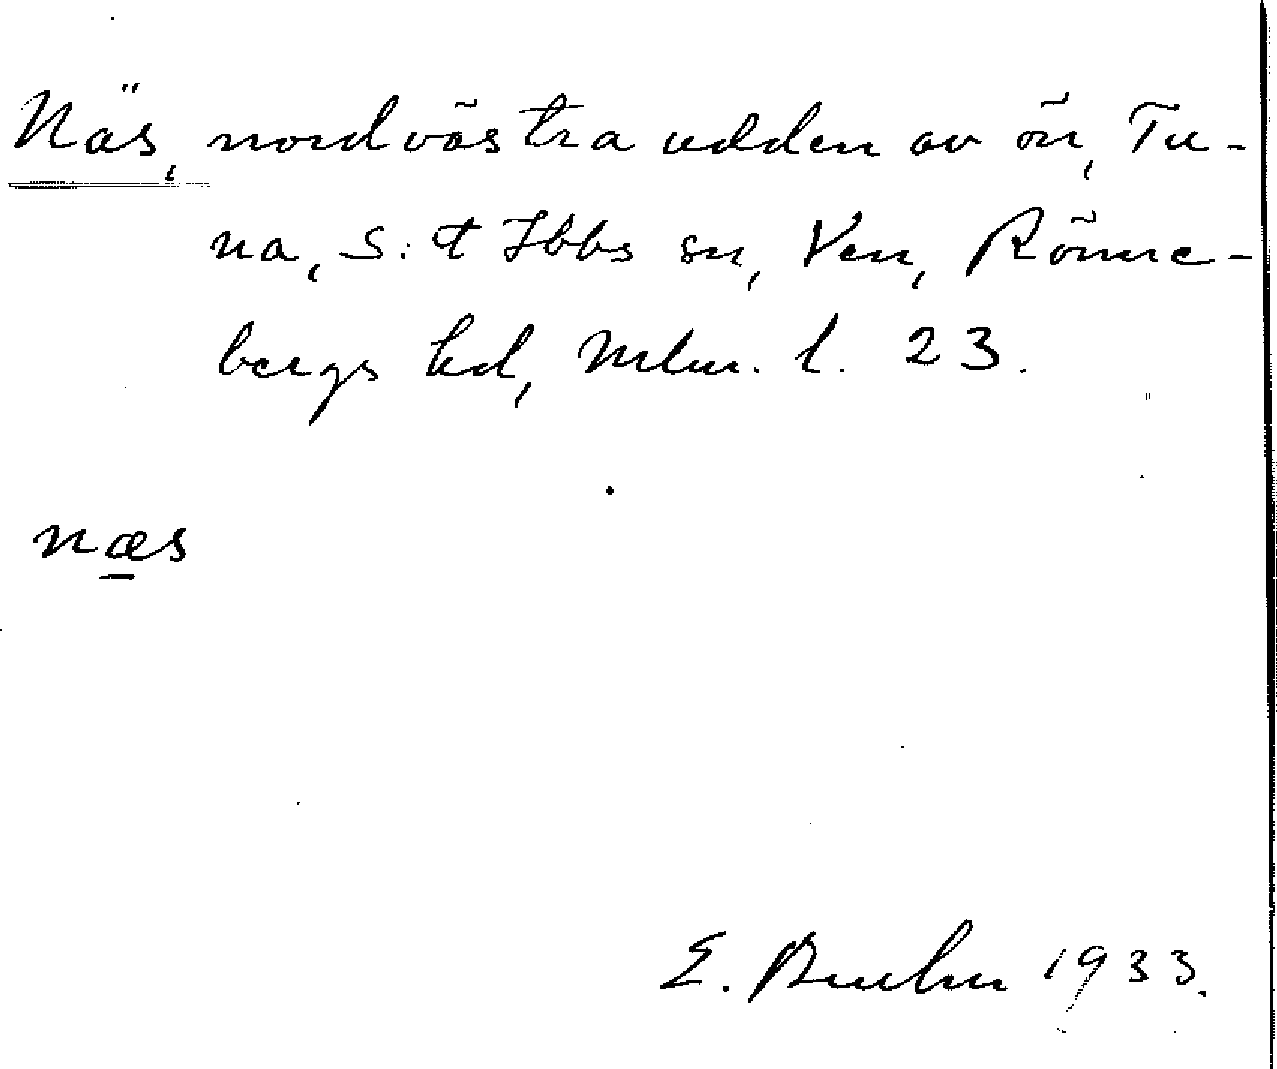 Näs, nordvästra udden av ön, Tu-
na, S:t Ibbs sn, Ven, Rönne-
bergs hd, Mlm. l. 23.
næs
E. 1933.